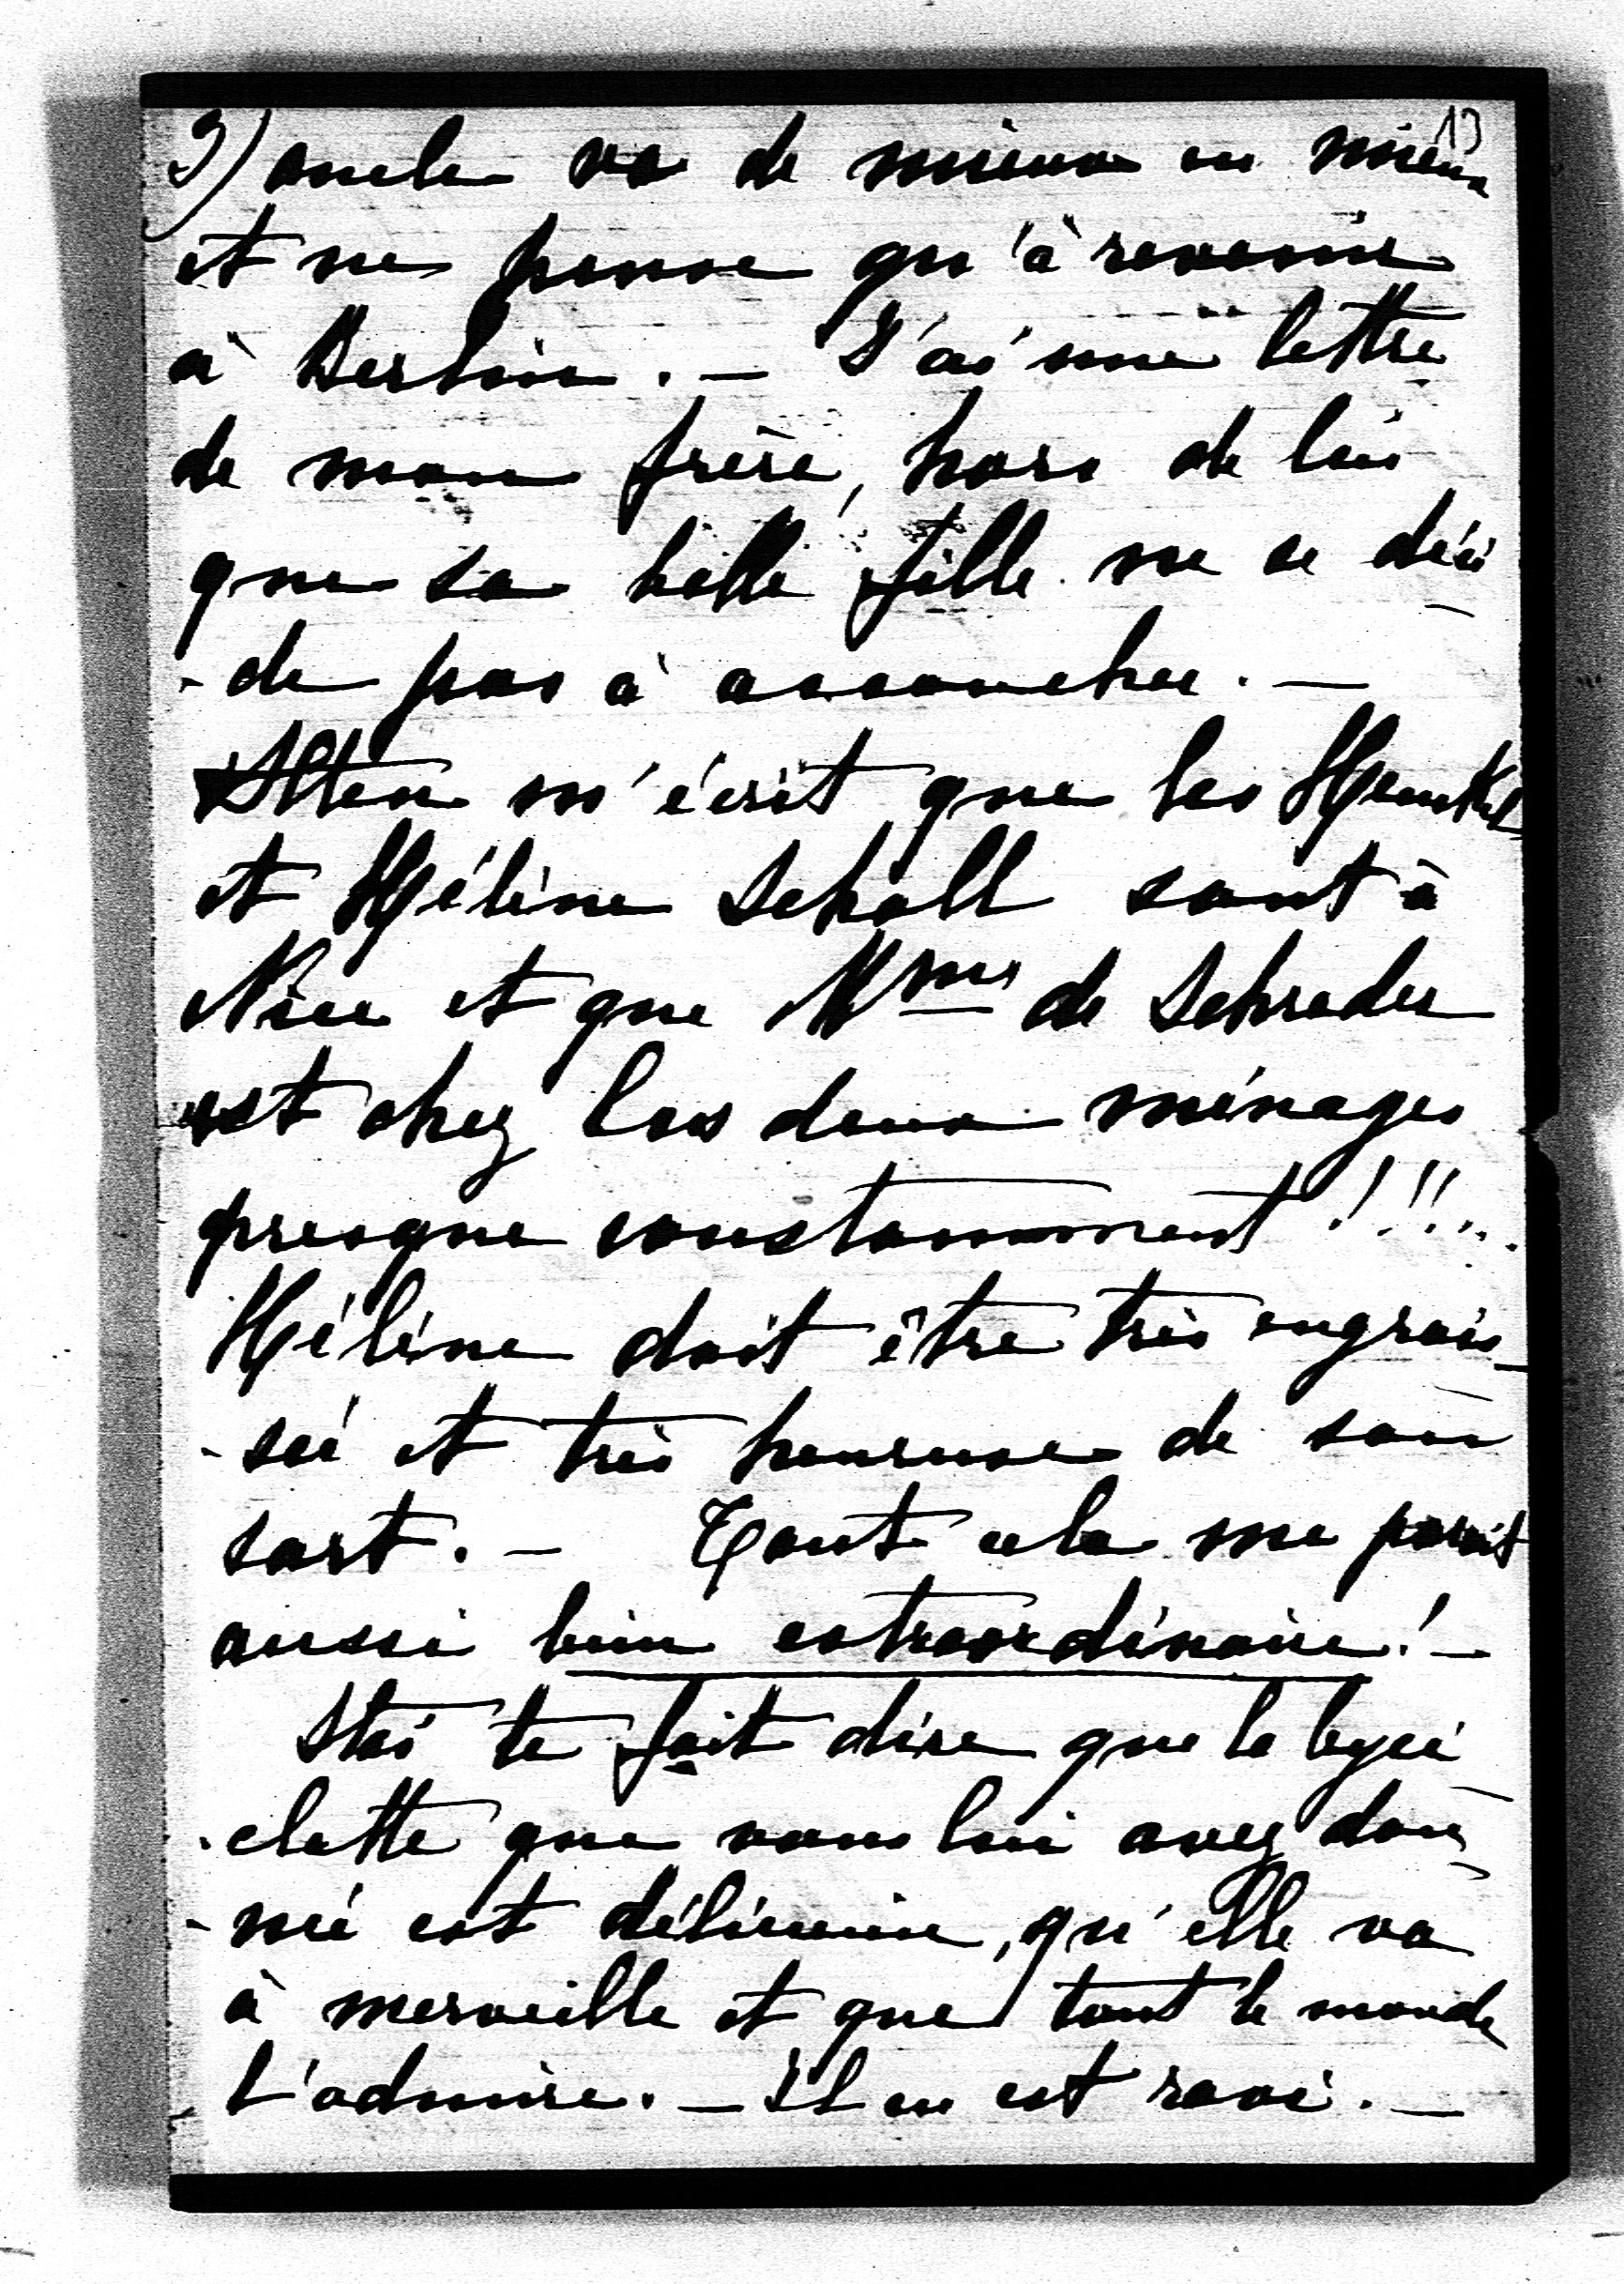 13
3) oncle va de mieux en mieux
et ne pense qu'à revenir
à Berlin. — J'ai une lettre
de mon frère, hors de lui
que sa belle fille ne se déci
- de pas à accoucher. —
m'écrit que les Henckel
et Hélène Scholl sont à
Nice et que Mme de Schreder
est chez les deux ménages
presque constamment !!!...
Hélène doit être très engrais-
- sé et très heureuse de son
sort. — Tout cela me parait
aussi bien extraordinaire! —
Staï te fait dire que la byci
- clette que vous lui avez don-
- né est délicieuse, qu'elle va
à merveille et que tout le monde
l'admire. — Il en est ravi. —